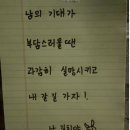 남의 기대가
부담스러울땐
과감히 실망시키고
내 갈 길 가자!